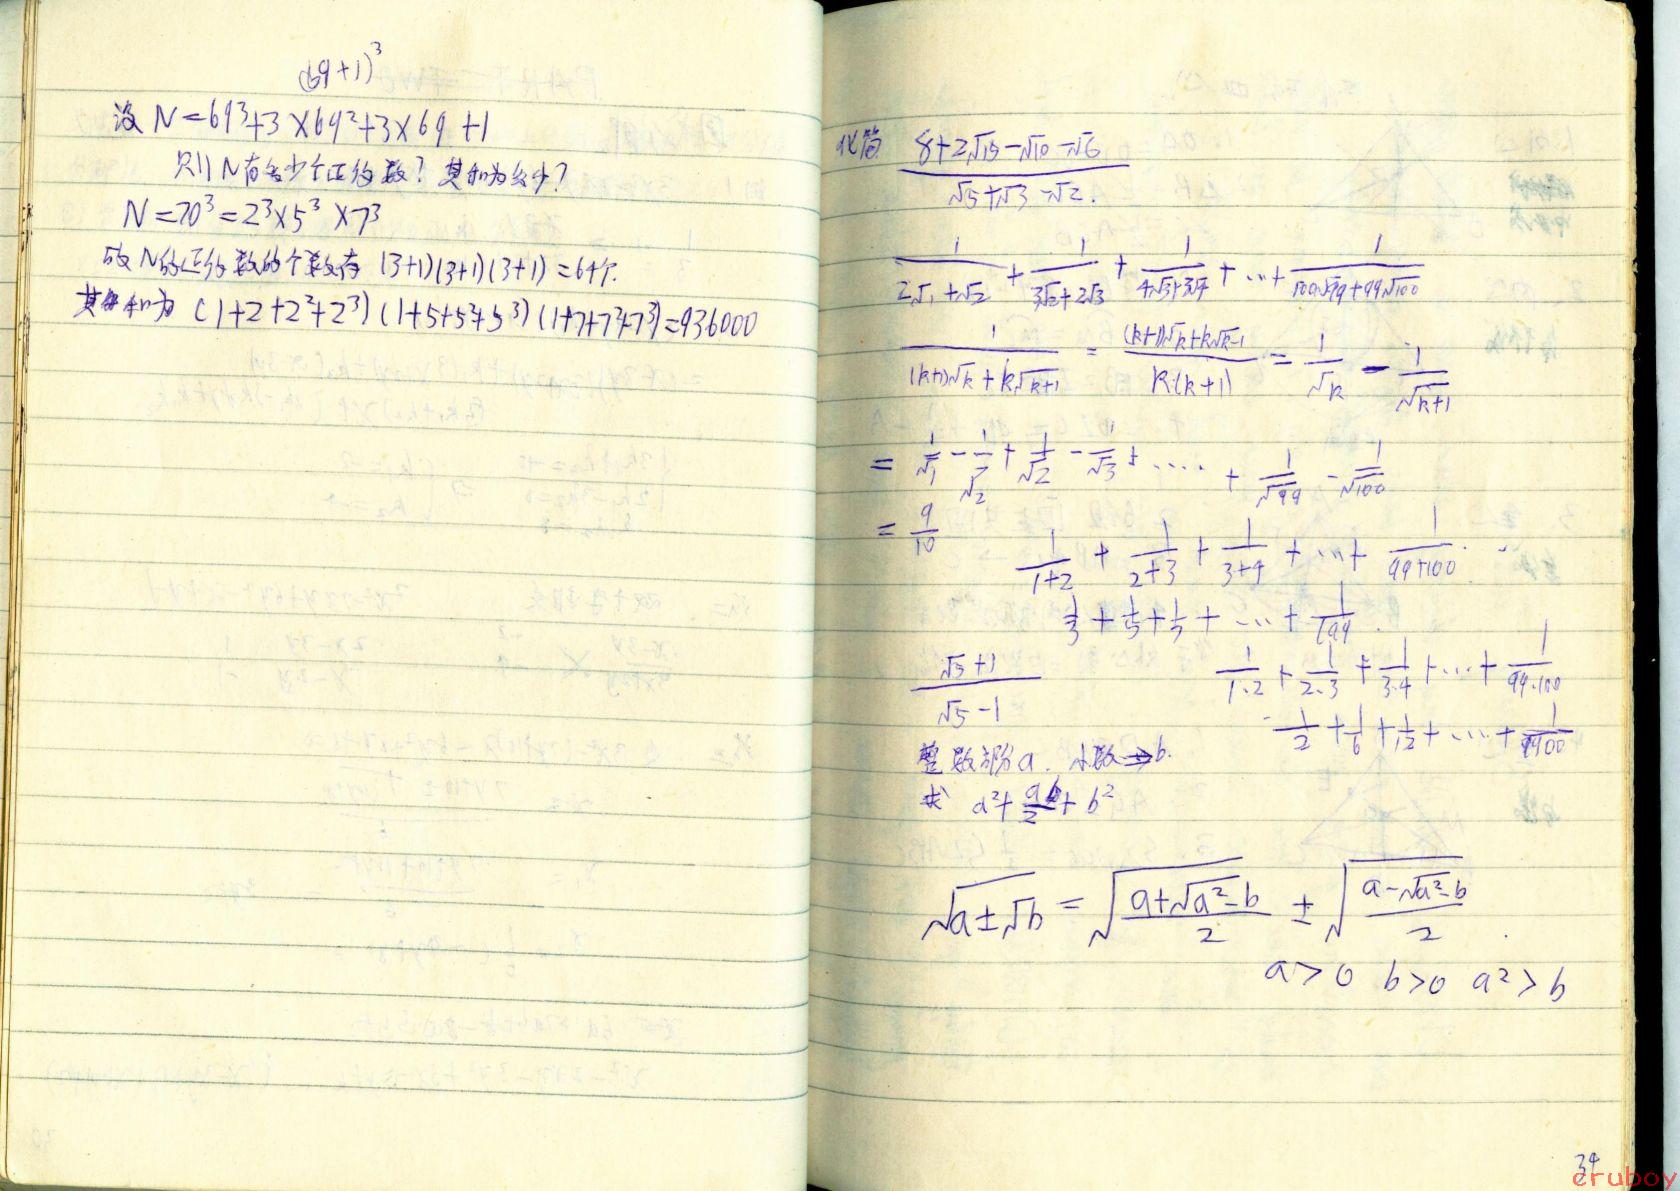 (69+1)³
设 N=69³+3×69²+3×69+1
则N有多少个正约数?其和为多少?
N=70³=2³×5³×7³
故N的正约数的个数有 (3+1)(3+1)(3+1)=64个.
其和为 (1+2+2²+2³)(1+5+5²+5³)(1+7+7²+7³)=936000
化简 (8+2√15-√10-√6)/(√5+√3-√2).
1/(2√1+√2) + 1/(3√2+2√3) + 1/(4√3+3√4) + ... + 1/(100√99+99√100)
1/((k+1)√k+k√k+1) = ((k+1)√k+k√k-1)/(k(k+1)) = 1/√k - 1/√k+1
= 1/√1 - 1/√2 + 1/√2 - 1/√3 + .... + 1/√99 - 1/√100
= 9/10
1/(1+2) + 1/(2+3) + 1/(3+4) + ... + 1/(99+100).
1/3 + 1/5 + 1/7 + ... + 1/199.
(√5+1)/(√5-1)
1/1·2 + 1/2·3 + 1/3·4 + ... + 1/99·100
1/2 + 1/6 + 1/12 + ... + 1/9900
整数部份a. 小数→b.
求 a²+ab/2+b²
√(a±√b) = √((a+√(a²-b))/2) ± √((a-√(a²-b))/2).
a>0 b>0 a²>b
34
eruboy